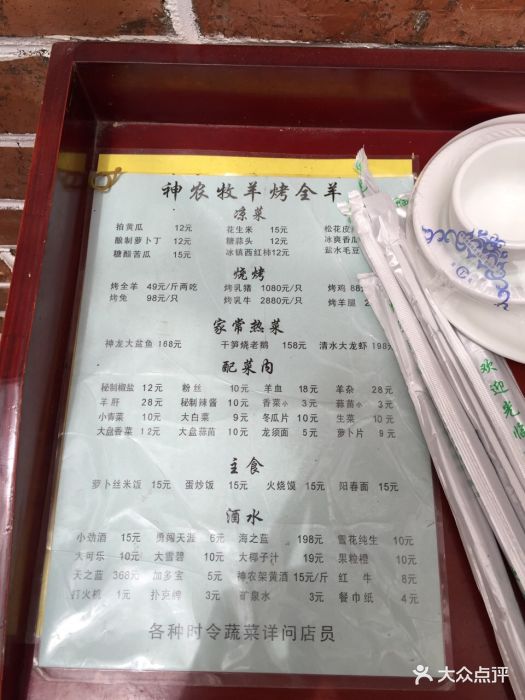 神农牧羊烤全羊
凉菜
拍黄瓜 12元 花生米 15元 松花皮
酿制萝卜丁 12元 糖蒜头 12元 冰爽香瓜
糖醋苦瓜 15元 冰镇西红柿12元 盐水毛豆
烧烤
烤全羊 49元/斤两吃 烤乳猪 1080元/只 烤鸡 88
烤兔 98元/只 烤乳牛 2880元/只 烤羊腿
家常热菜
神龙大盆鱼 168元 干笋烧老鹅 158元 清水大龙虾 198
配菜内
秘制椒盐 12元 粉丝 10元 羊血 18元 羊杂 28元
羊肝 28元 秘制辣酱 10元 香菜小 3元 蒜苗小 3元
小青菜 10元 大白菜 9元 冬瓜片 10元 生菜 10元
大盘香菜 12元 大盘蒜苗 10元 龙须面 5元 萝卜片 9元
主食
萝卜丝米饭 15元 蛋炒饭 15元 火烧馍 15元 阳春面 15元
酒水
小劲酒 15元 勇闯天涯 6元 海之蓝 198元 雪花纯生 10元
大可乐 10元 大雪碧 10元 大椰子汁 19元 果粒橙 10元
天之蓝 368元 加多宝 5元 神农架黄酒 15元/斤 红牛 8元
打火机 1元 扑克牌 3元 矿泉水 3元 餐巾纸 4元
各种时令蔬菜详问店员
欢迎光临
大众点评